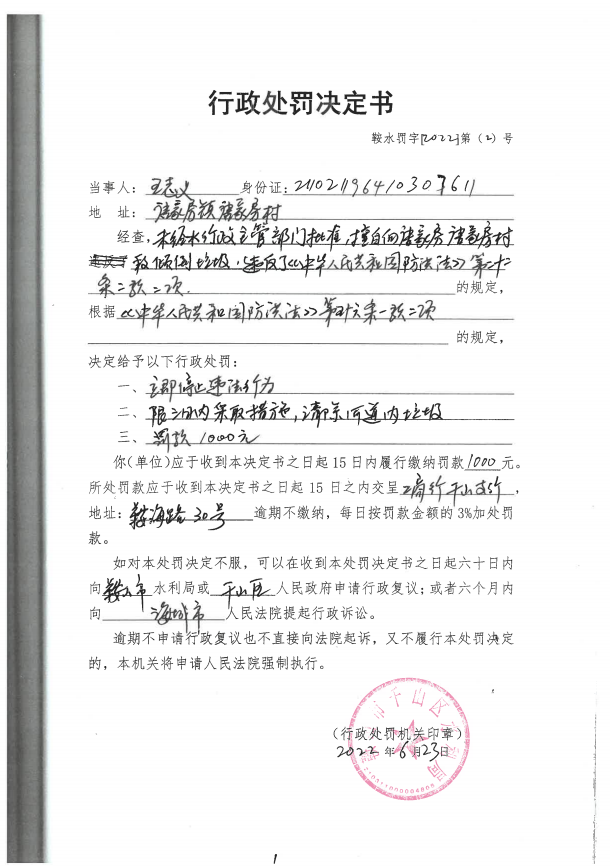 行政处罚决定书
鞍水罚字[2022]第（2）号
当事人：王志义 身份证：210211196410307611
地 址：唐家房镇唐家房村
经查，未经水行政主管部门批准，擅自向唐家房唐家房村
段倾倒垃圾，违反了《中华人民共和国防洪法》第二十二
条二款二项. 的规定，
根据《中华人民共和国防洪法》第五十六条一款二项
的规定，
决定给予以下行政处罚：
一、立即停止违法行为
二、限三日内采取措施，清除河道内垃圾
三、罚款1000元
你（单位）应于收到本决定书之日起15日内履行缴纳罚款1000元。
所处罚款应于收到本决定书之日起15日之内交呈工商行千山支行，
地址：鞍海路30号 逾期不缴纳，每日按罚款金额的3%加处罚
款。
如对本处罚决定不服，可以在收到本处罚决定书之日起六十日内
向鞍山市水利局或千山区人民政府申请行政复议；或者六个月内
向海城市人民法院提起行政诉讼。
逾期不申请行政复议也不直接向法院起诉，又不履行本处罚决定
的，本机关将申请人民法院强制执行。
（行政处罚机关印章）
2022年6月23日
1